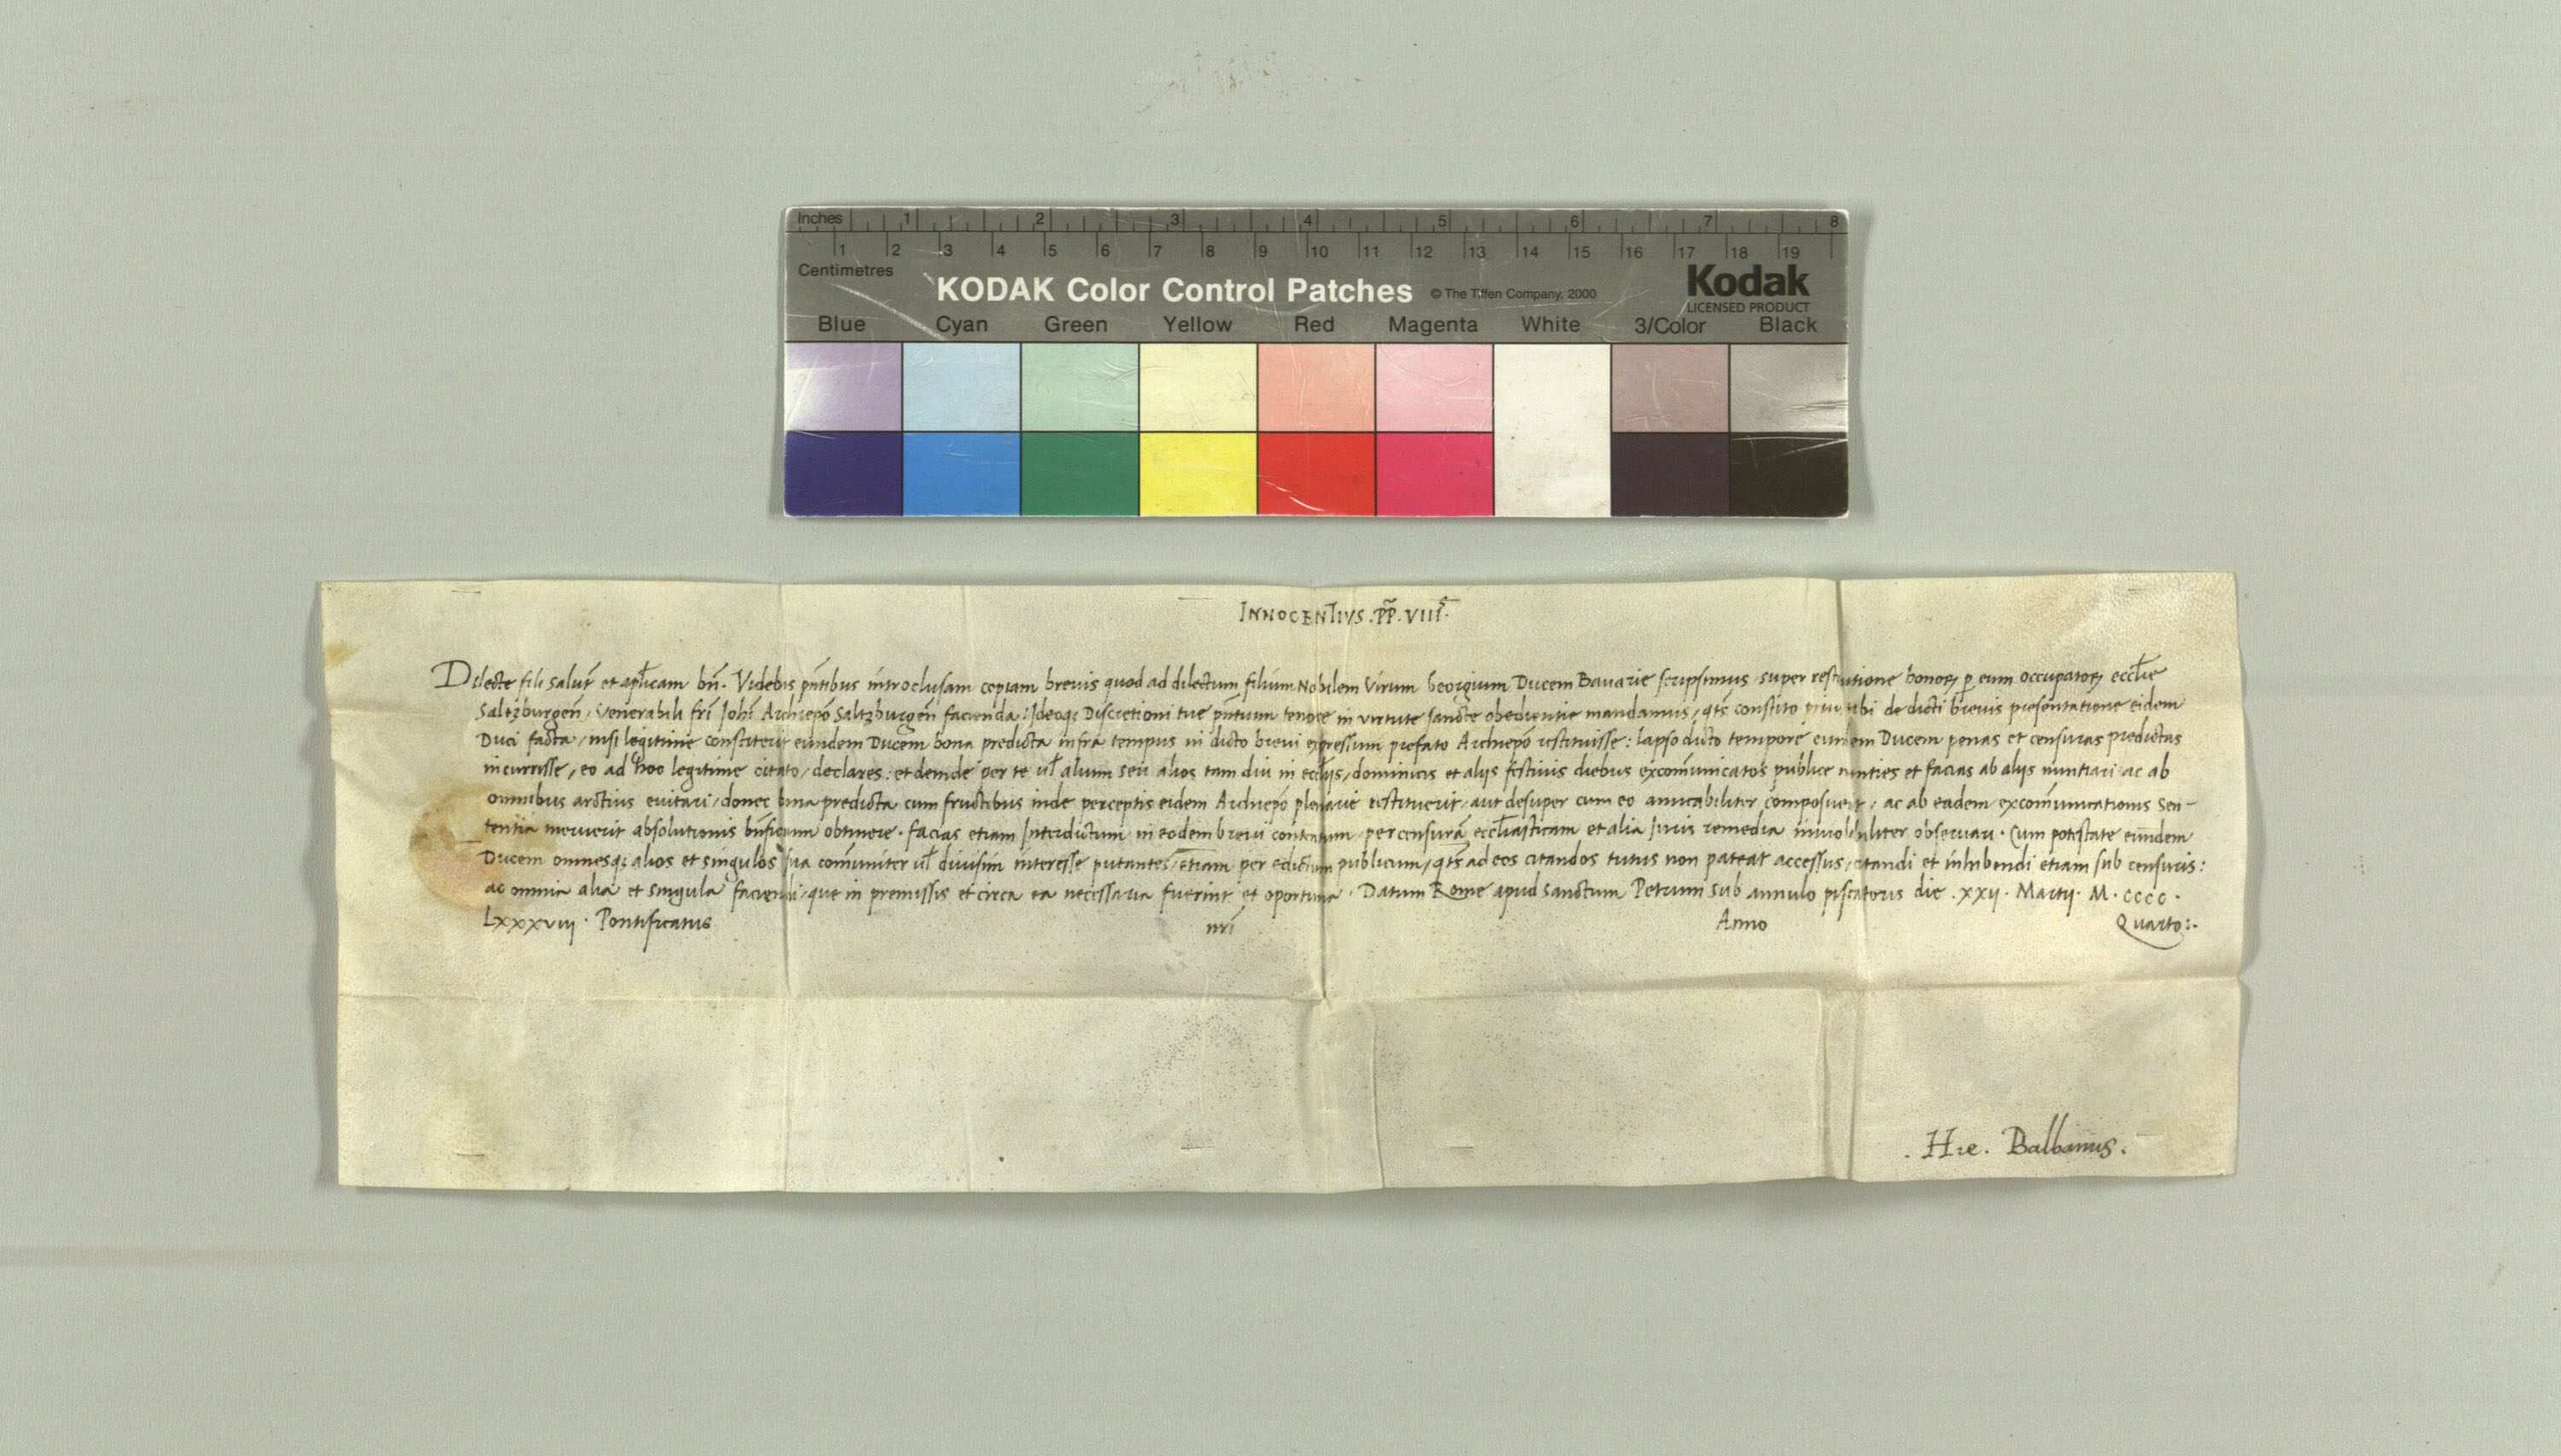 Inches 1 2 3 4 5 6 7 8
1 2 3 4 5 6 7 8 9 10 11 12 13 14 15 16 17 18 19
Centimetres
KODAK Color Control Patches © The Tiffen Company, 2000 Kodak
LICENSED PRODUCT
Blue Cyan Green Yellow Red Magenta White 3/Color Black
INNOCENTIVS . P̃P̃ . VIIIˢ.
Dilecte fili salut̃ et apl̃icam bñ. Videbis pñtibus introclusam copiam brevis quod ad dilectum filium Nobilem Virum Georgium Ducem Bavarie scripsimus super restitutione bonoꝝ ꝑ eum occupatoꝝ eccl̃ie
Saltzburgeñ, Venerabili fr̃i Joh̃i Archiepõ Saltzburgeñ facienda: Ideoqꝫ Discretioni tue pñtium tenore in virtute sancte obedientie mandamus, qt̃s constito prius tibi de dicti brevis presentatione eidem
Duci facta, nisi legitime constiterit eundem Ducem bona predicta infra tempus in dicto brevi expressum prefato Archiepõ restituisse: lapso dicto tempore eundem Ducem penas et censuras predictas
incurrisse, eo ad hoc legitime citato, declares: et deinde per te ul̃ alium seu alios tam diu in eccl̃ijs, dominicis et alijs festivis diebus excom̃unicatos publice nunties et facias ab alijs nuntiari ac ab
omnibus arctius evitari, donec bona predicta cum fructibus inde perceptis eidem Archiepõ plenarie restituerit, aut desuper cum eo amicabiliter composuerit, ac ab eadem excom̃unicationis Sen-
tentia meruerit absolutionis bñficium obtinere. facias etiam Interdictum in eodem brevi contentum per censurã eccl̃iasticam et alia Juris remedia inviolabiliter observari. Cum potestate eundem
Ducem omnesqꝫ alios et singulos sua com̃uniter ul̃ divisim interesse putantes, etiam per edictum publicum, qt̃s ad eos citandos tutus non pateat accessus, citandi et inhibendi etiam sub censuris:
ac omnia alia et singula faciendi, que in premissis et circa ea necessaria fuerint et oportuna. Datum Rome apud Sanctum Petrum sub annulo piscatoris die . xxij . Martij . M . cccc .
Lxxxviij . Pontificatus nr̃i Anno Quarto:.
. Hie. Balbanus.